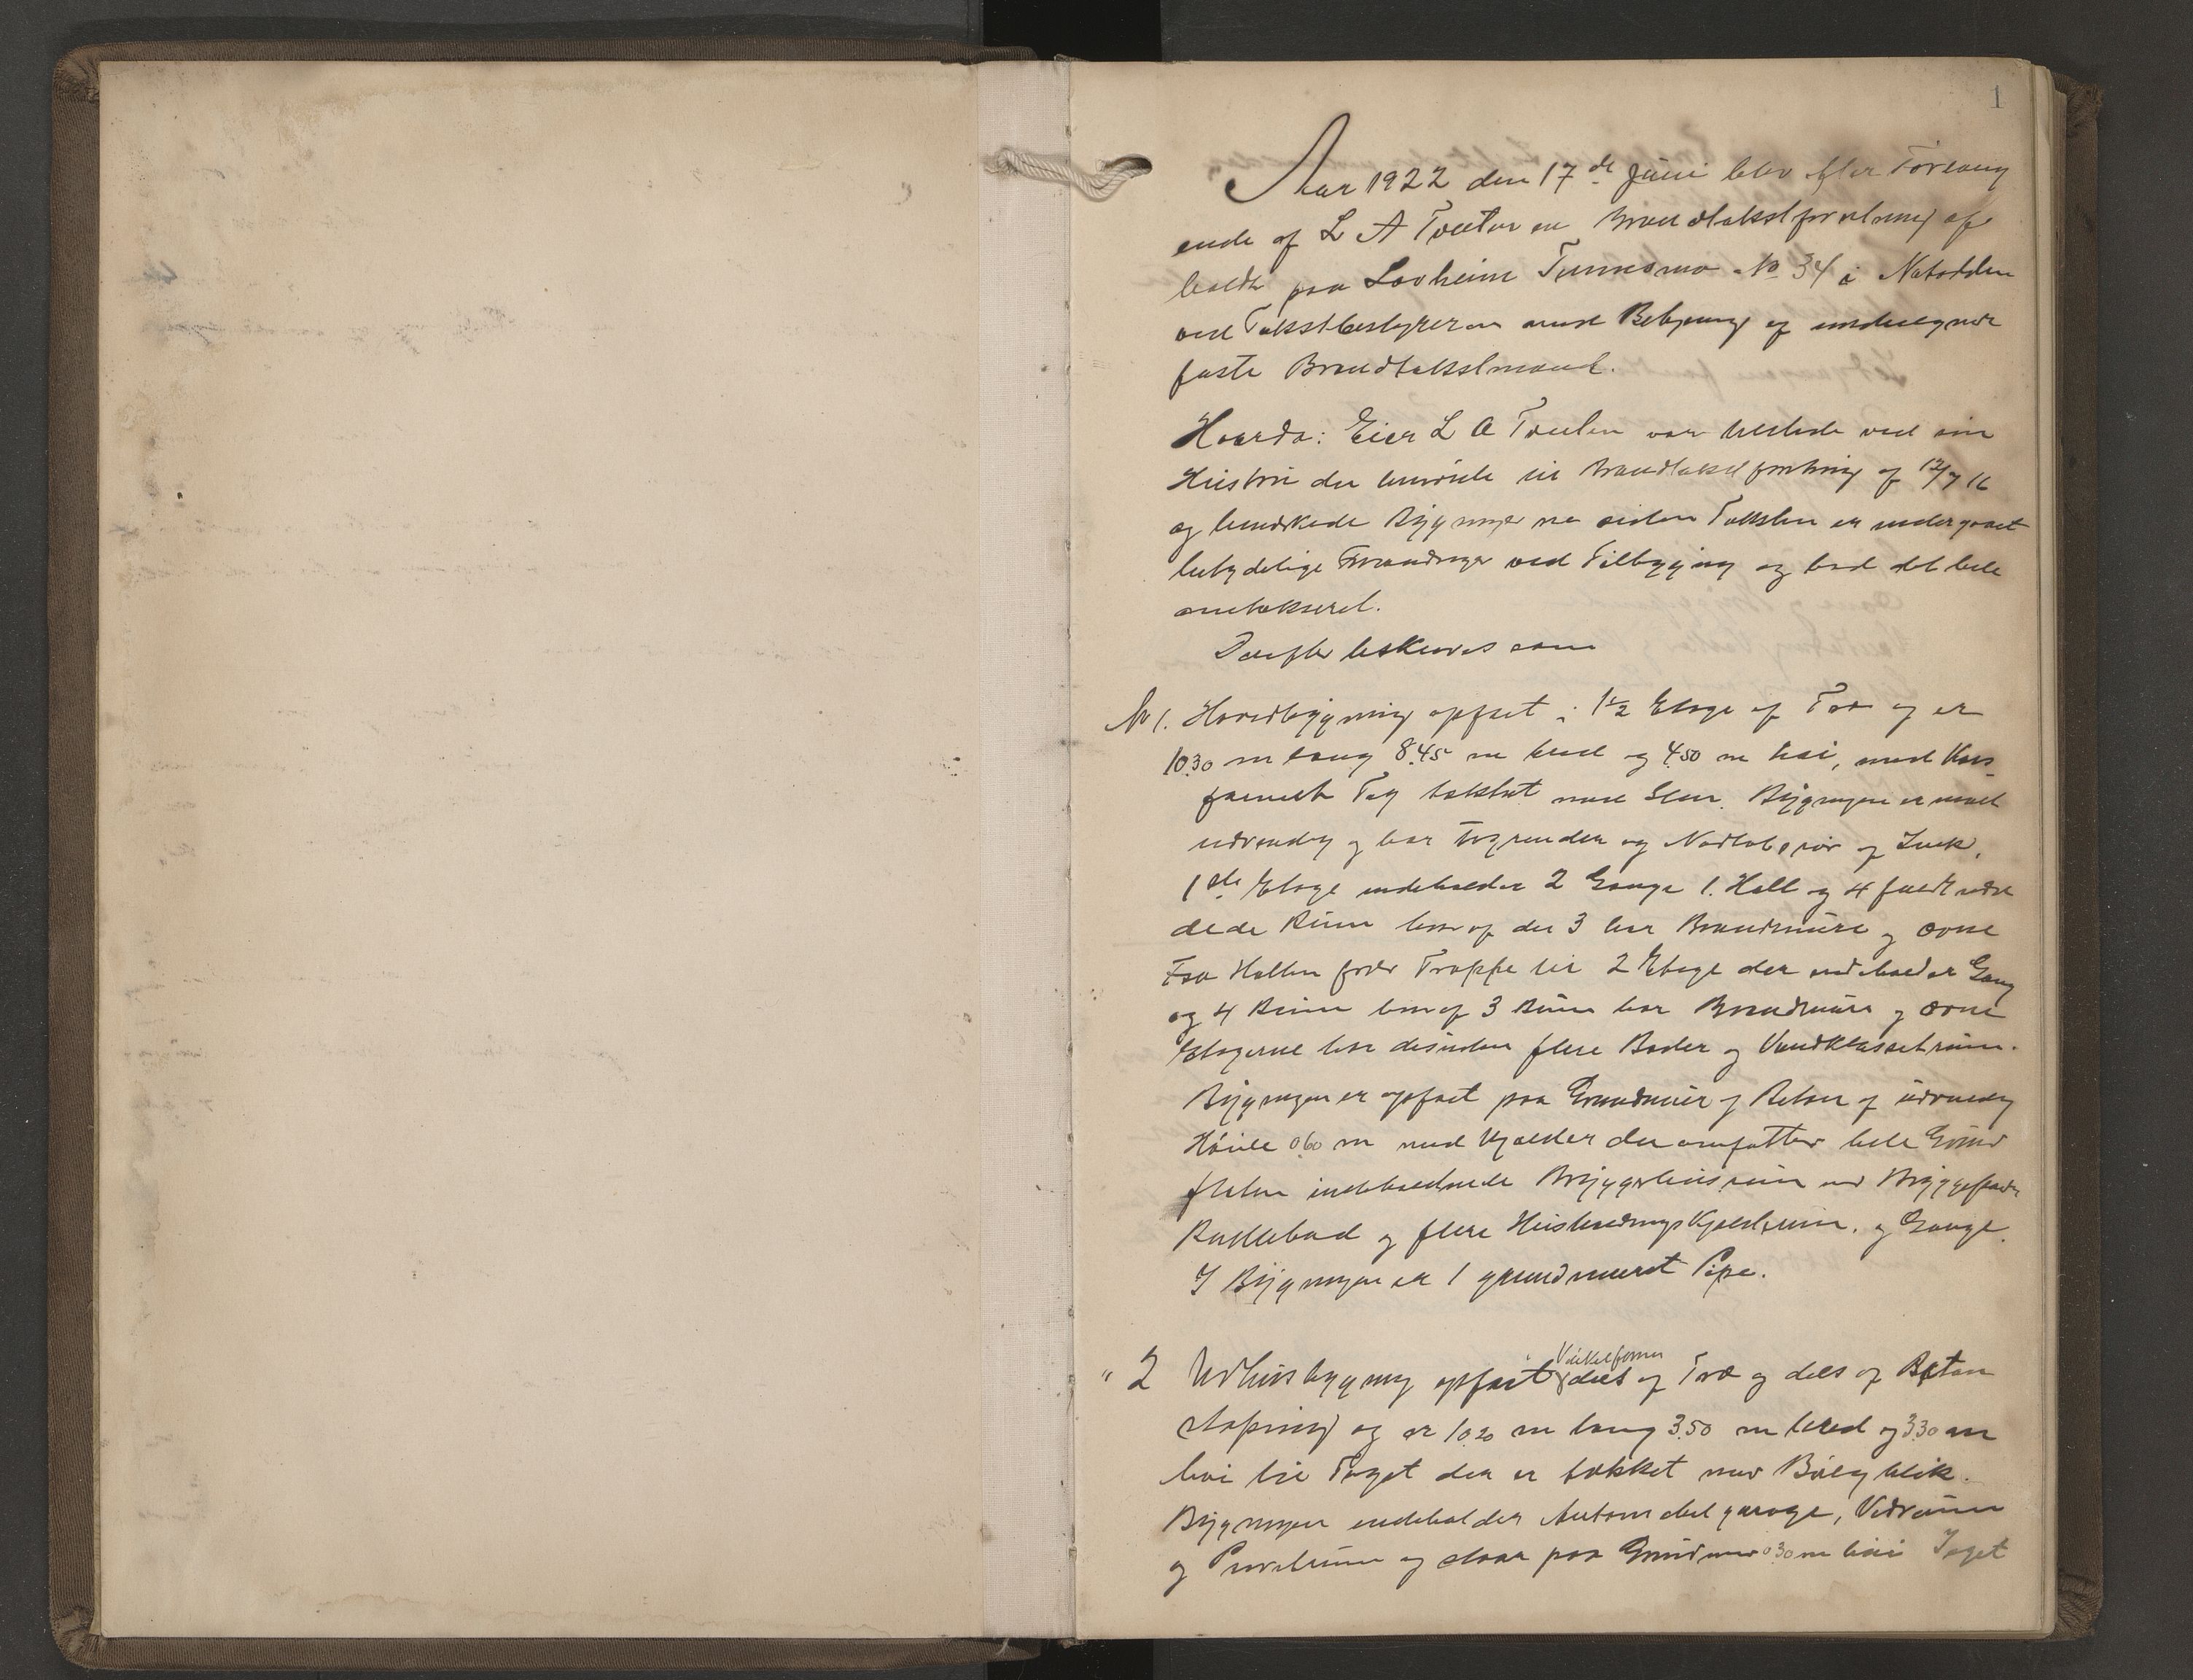 1
Aar 1922 den 17de Juni blev efter Forlang
ende af L A Tveten en Brandtakstforretning af
holdt paa Lovheim Tinnesmo No 34 i Notodden
ved Takstbestyreren med Betjening af undertegnede
faste Brandtakstmænd.
Hvorda: Eier L A Tveten var tilstede ved sin
Hustru der henviste til Brandtakstforretning af 12/7 16
og Bygningerne siden Taksten er undergaaet
betydelige Forandringer ved Tilbygging og bad det hele
omtakseret.
Derefter beskrives som
No 1. Hovedbygning opført i 1½ Etage af Træ og er
10.30 m lang 8.45 m bred og 4.50 m høi, med Kors-
formet Tag tækket med Sten. Bygningen er malet
udvendig og har Tagrender og Nedløbsrør af Zink.
1ste Etage indeholder 2 Gange 1. Hall og 4 fuldt indre
dede Rum hvoraf der 3 har Brandmure og Ovne
Fra Hallen fører Trappe til 2 Etage der indeholder Gang
og 4 Rum hvoraf 3 Rum har Brandmure og Ovne
Etagerne har desuden flere Boder og Vandklossetrum.
Bygningen er opført paa Grundmur af Beton af udvendig
Høide 0.60 m med Kjælder der omfatter hele Grund
flaten indeholdende Bryggerhusrum med Bryggepande
Rullebod og flere Husholdnings Kjælderrum. og Gange.
I Bygningen er 1 grundmuret Pipe.
" 2 Udhusbygning opført i Vinkelform dels af Træ og dels af Beton
støpning og er 10.20 m lang 3.50 m bred og 3.30 m
høi til Taget der er tækket med Bølgeblik.
Bygningen indeholder Automobilgarage, Vedrum
og Privetrum og staar paa Grundmur 0.30 m høi Taget